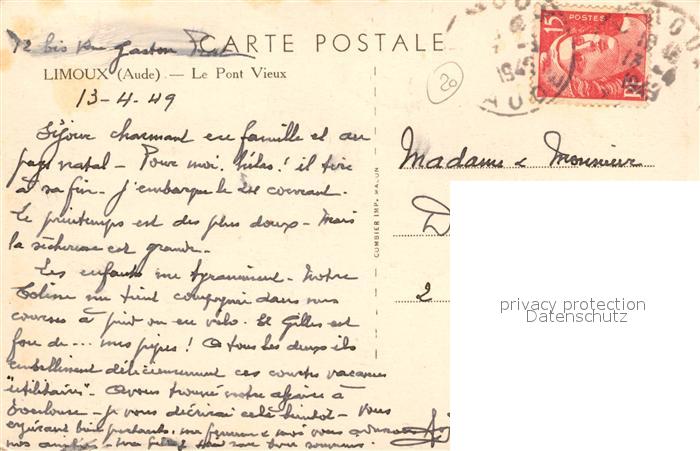 12 bis Rue Gaston
CARTE POSTALE
LIMOUX (Aude) — Le Pont Vieux
13-4-49
20
15F
POSTES
RF
1949
Séjour charmant en famille et au
pays natal - Pour moi, hélas ! il tire
à sa fin - J'embarque le 22 courant.
Le printemps est des plus doux - Mais
la sécheresse est grande.
Les enfants me tyrannisent - Notre
me tient compagnie dans mes
courses à pied ou en vélo. Et Gilles est
fou de... mes pipes ! A tous les deux ils
embellissent délicieusement ces courtes vacances
"utilitaires" - Avons trouvé notre affaire à
Toulouse - je vous décrirai cela bientôt - Vous
espérant bien portants, ma femme et moi vous adressons
nos amitiés -
Madame & Monsieur
D
2
COMBIER IMP. MACON
privacy protection
Datenschutz